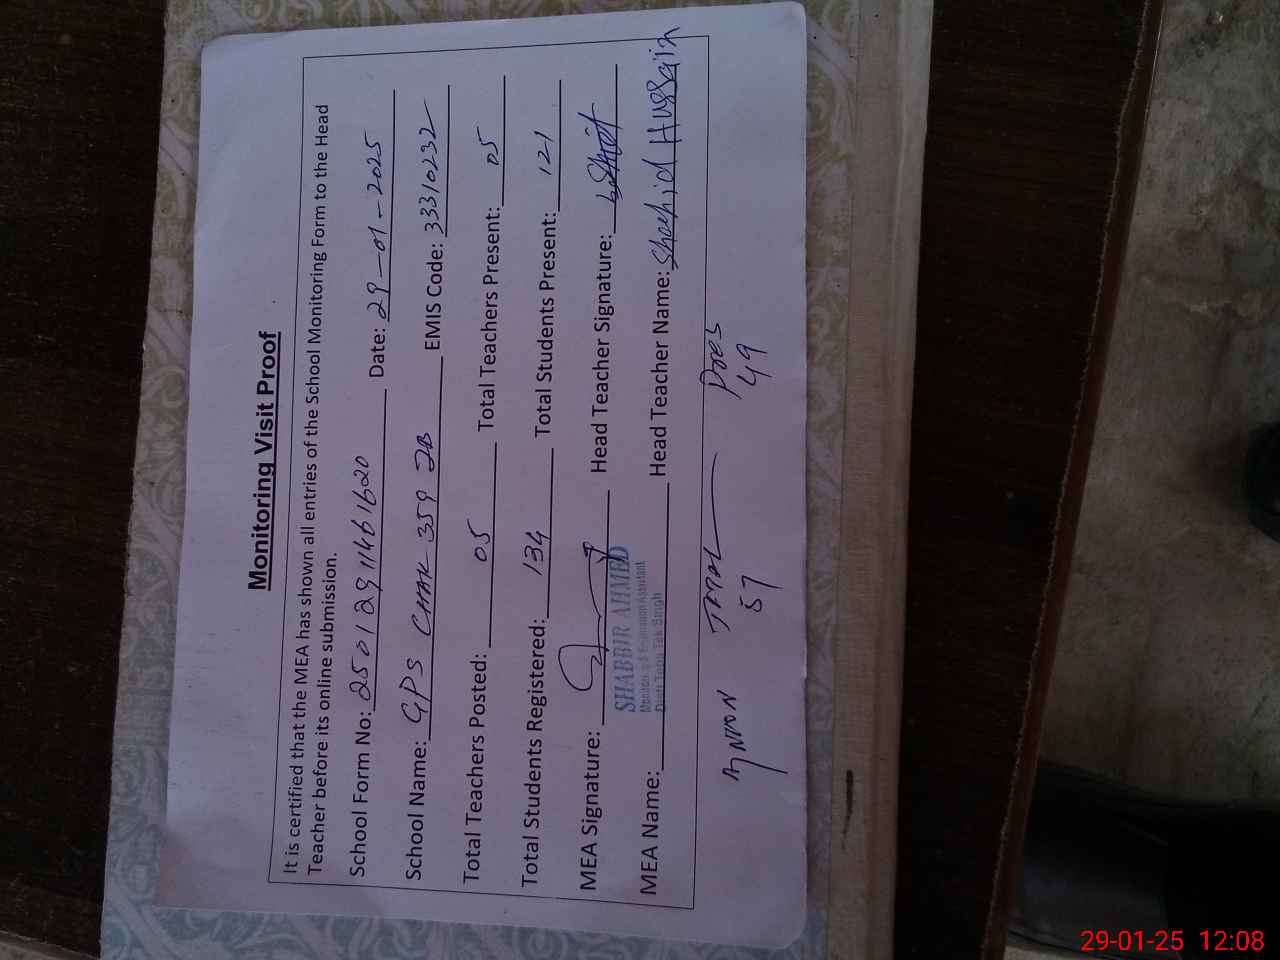 Monitoring Visit Proof
It is certified that the MEA has shown all entries of the School Monitoring Form to the Head
Teacher before its online submission.
School Form No: 25012911461620 Date: 29-01-2025
School Name: GPS CHAK 359 JB EMIS Code: 33310232
Total Teachers Posted: 05 Total Teachers Present: 05
Total Students Registered: 134 Total Students Present: 121
MEA Signature: Head Teacher Signature:
SHABBIR AHMED
Monitoring & Evaluation Assistant
Distt: Toba Tek Singh
MEA Name: Head Teacher Name: Shahid Hussain
Total Pres
57 49
29-01-25 12:08